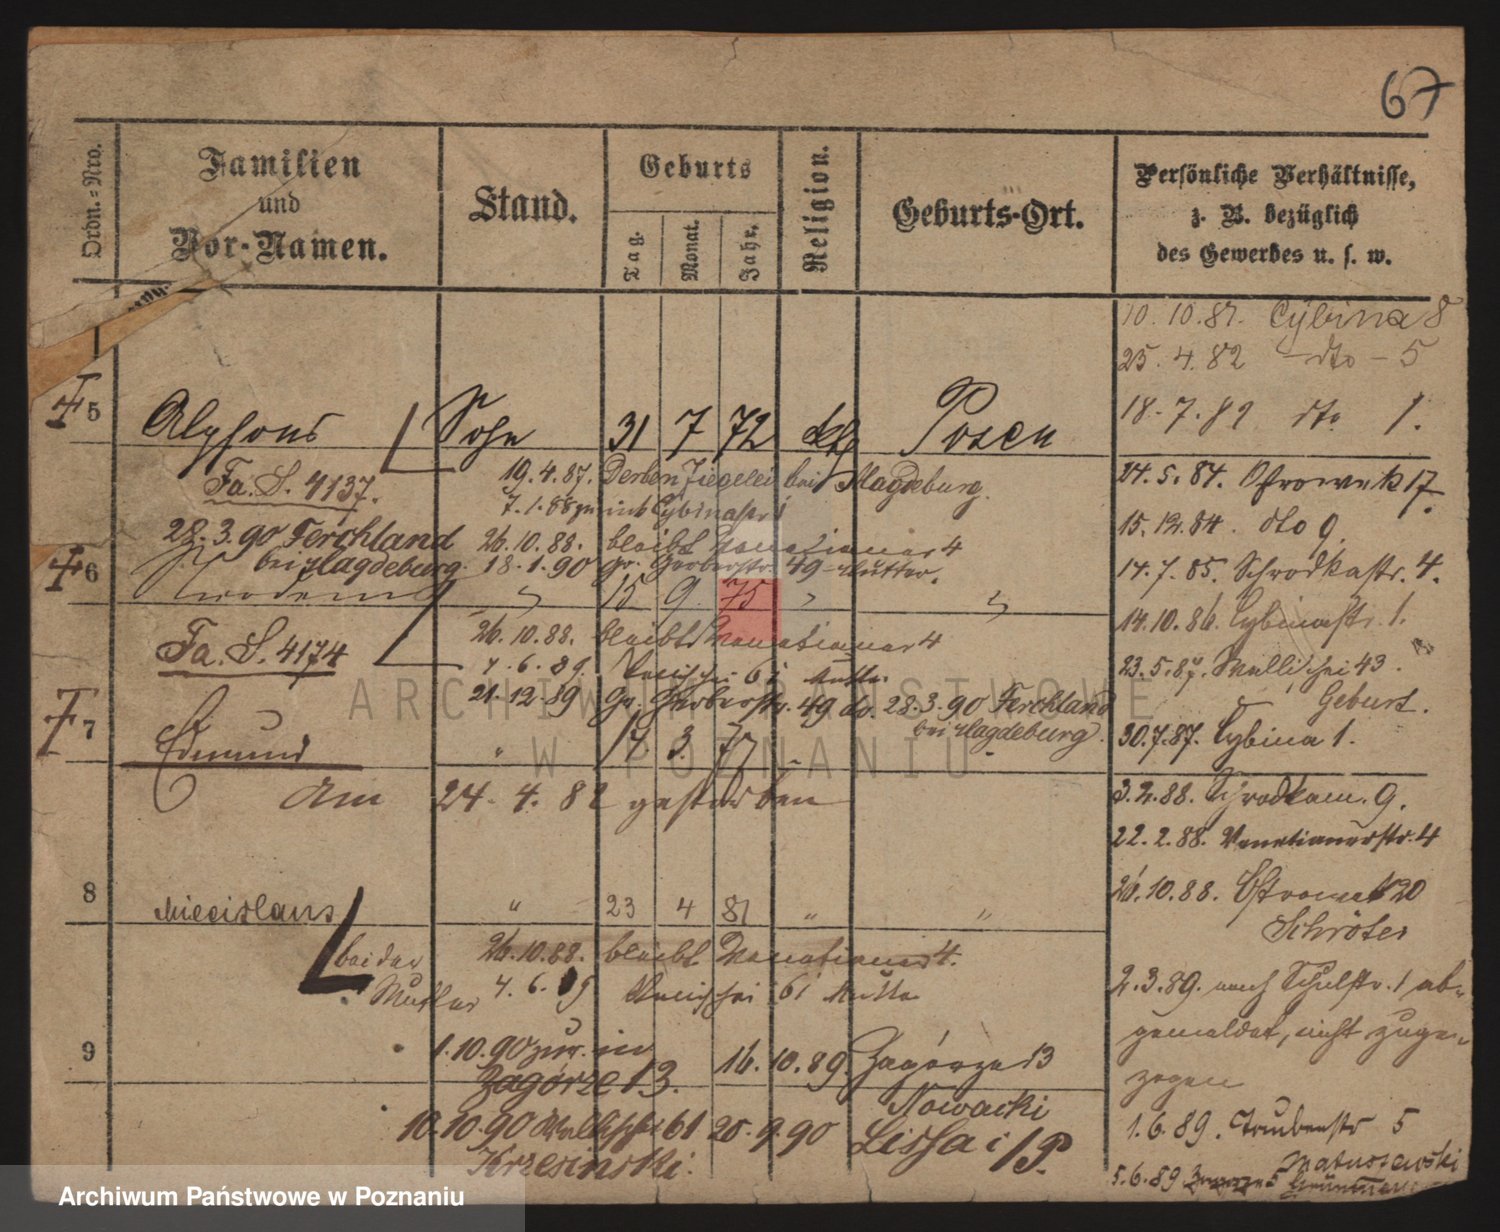 67
Ordn.-Nro.
Familien
und
Vor-Namen.
Stand.
Geburts
Tag.
Monat.
Jahr.
Religion.
Geburts-Ort.
Persönliche Verhältnisse,
z. B. bezüglich
des Gewerbes u. s. w.
10.10.81. Cybina 8
25.4.82 dto - 5
18.7.82 dto 1.
5 Alphons Sohn 31 7 72 kth Posen
Fa. S. 4137.
19.4.87. Derben Ziegelei bei Magdeburg.
7.1.88 Cybinastr 1
24.5.84. Ostrowek 17
28.3.90 Ferchland
bei Magdeburg.
26.10.88. bleibt Venetianer 4
18.1.90 gr. Gerberstr. 49 Mutter.
15.12.84. dto 9
6 " 15 9. 75 " "
14.7.85. Schrodkastr. 4.
Fa. S. 4174
26.10.88. bleibt Venetianer 4
4.6.89. 61 Mutter
14.10.86. Cybinastr. 1.
21.12.89 Gr. Gerberstr. 49 do. 28.3.90 Ferchland
bei Magdeburg.
23.5.87. Wallischei 43.
Geburt.
7 Edmund " 17 3. 77
30.7.87. Cybina 1.
Am 24.4.82 gestorben
3.2.88. Schrodkam. 9.
22.2.88. Venetianerstr. 4
8 Miecislaus " 23 4 81 " "
26.10.88. Ostrowek 20
Schröter
bei der
Mutter
26.10.88. bleibt Venetianer 4.
4.6.89 61 Mutter
2.3.89. nach Schulstr. 1 ab-
gemeldet, nicht zuge-
zogen
9
1.10.90 zur. in
Zagórze 13.
16.10.89. Zagórze 13
Nowacki
10.10.90 Wallischei 61
Krzesinski.
20.9.90 Lissa i/P.
1.6.89. Taubenstr 5
Matuszewski
5.6.89
ARCHIWUM PAŃSTWOWE
W POZNANIU
Archiwum Państwowe w Poznaniu